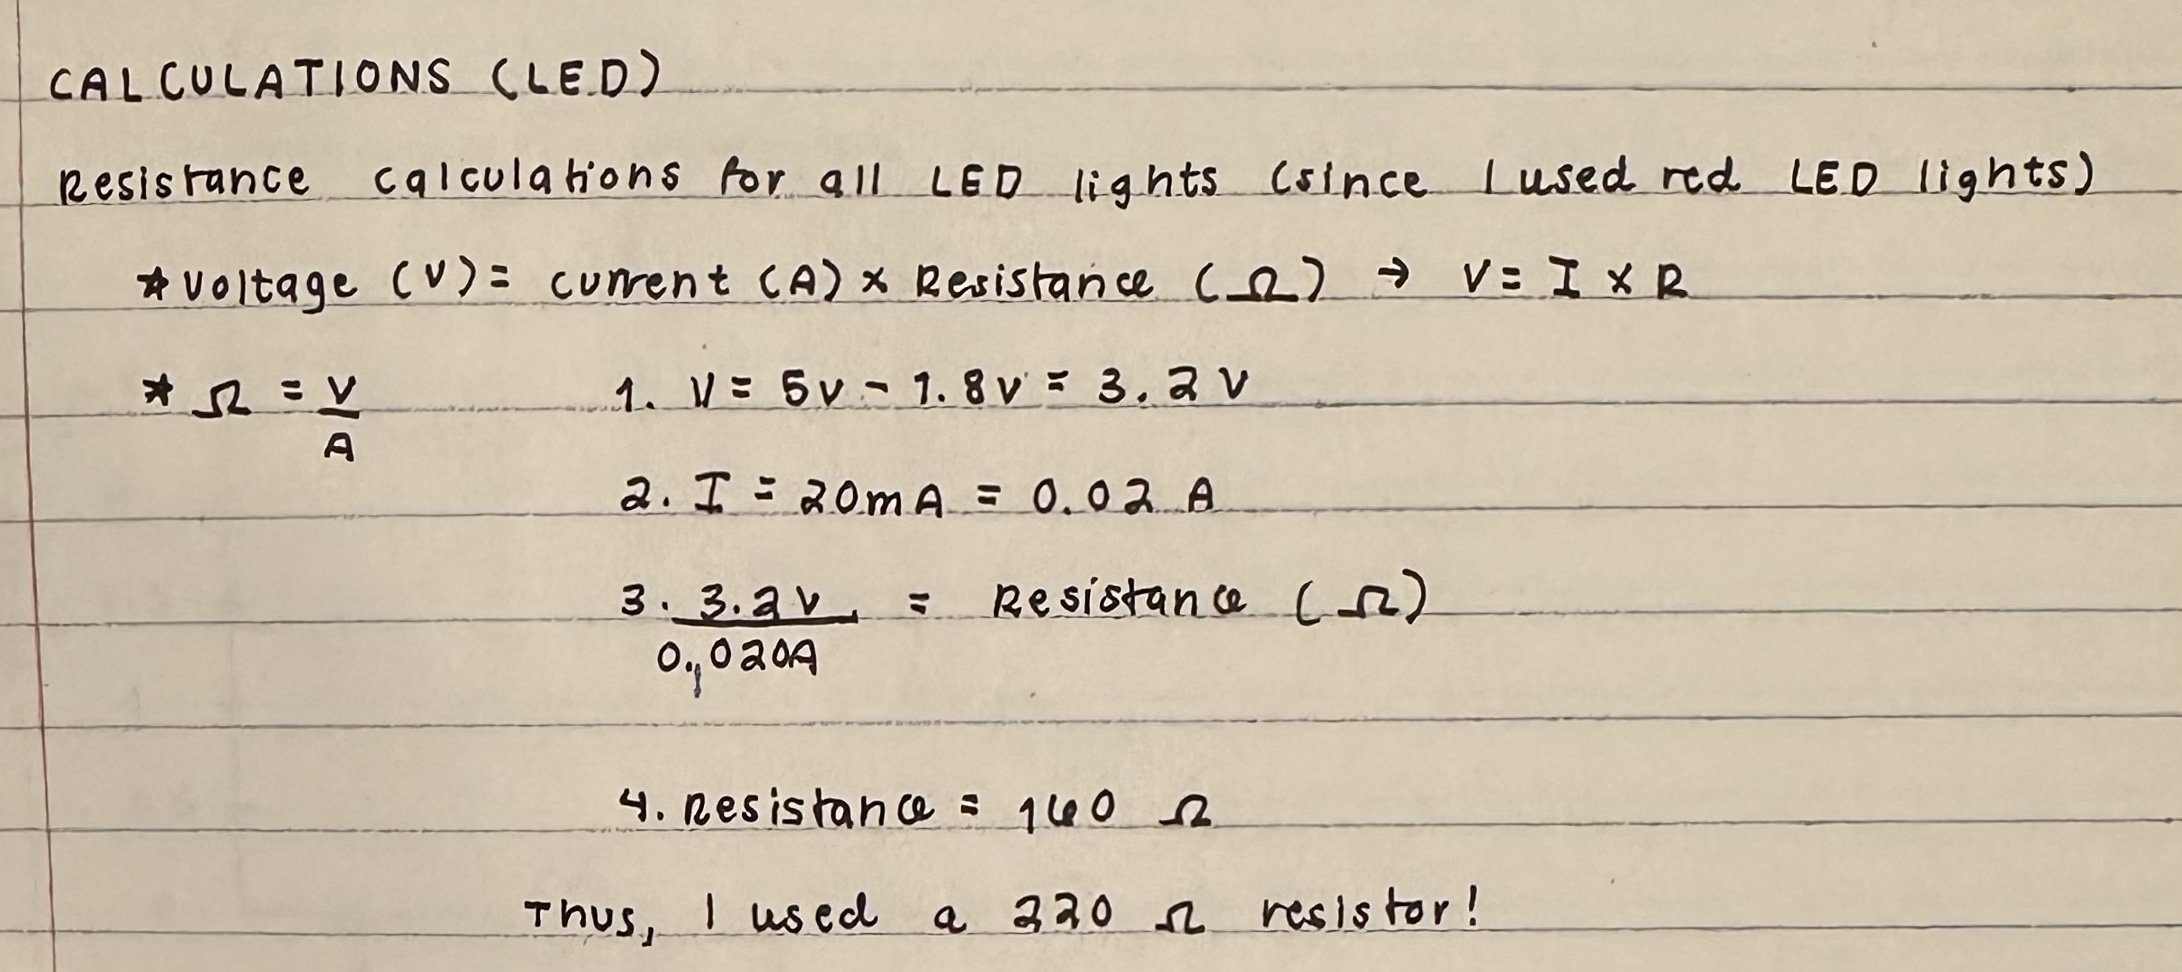 CALCULATIONS (LED)
Resistance calculations for all LED lights (since I used red LED lights)
* Voltage (V) = current (A) x Resistance (Ω) → V = I x R
* Ω = V/A 1. V = 5v - 1.8v = 3.2 V
2. I = 20mA = 0.02 A
3. 3.2v/0.020A = Resistance (Ω)
4. Resistance = 160 Ω
Thus, I used a 220 Ω resistor!